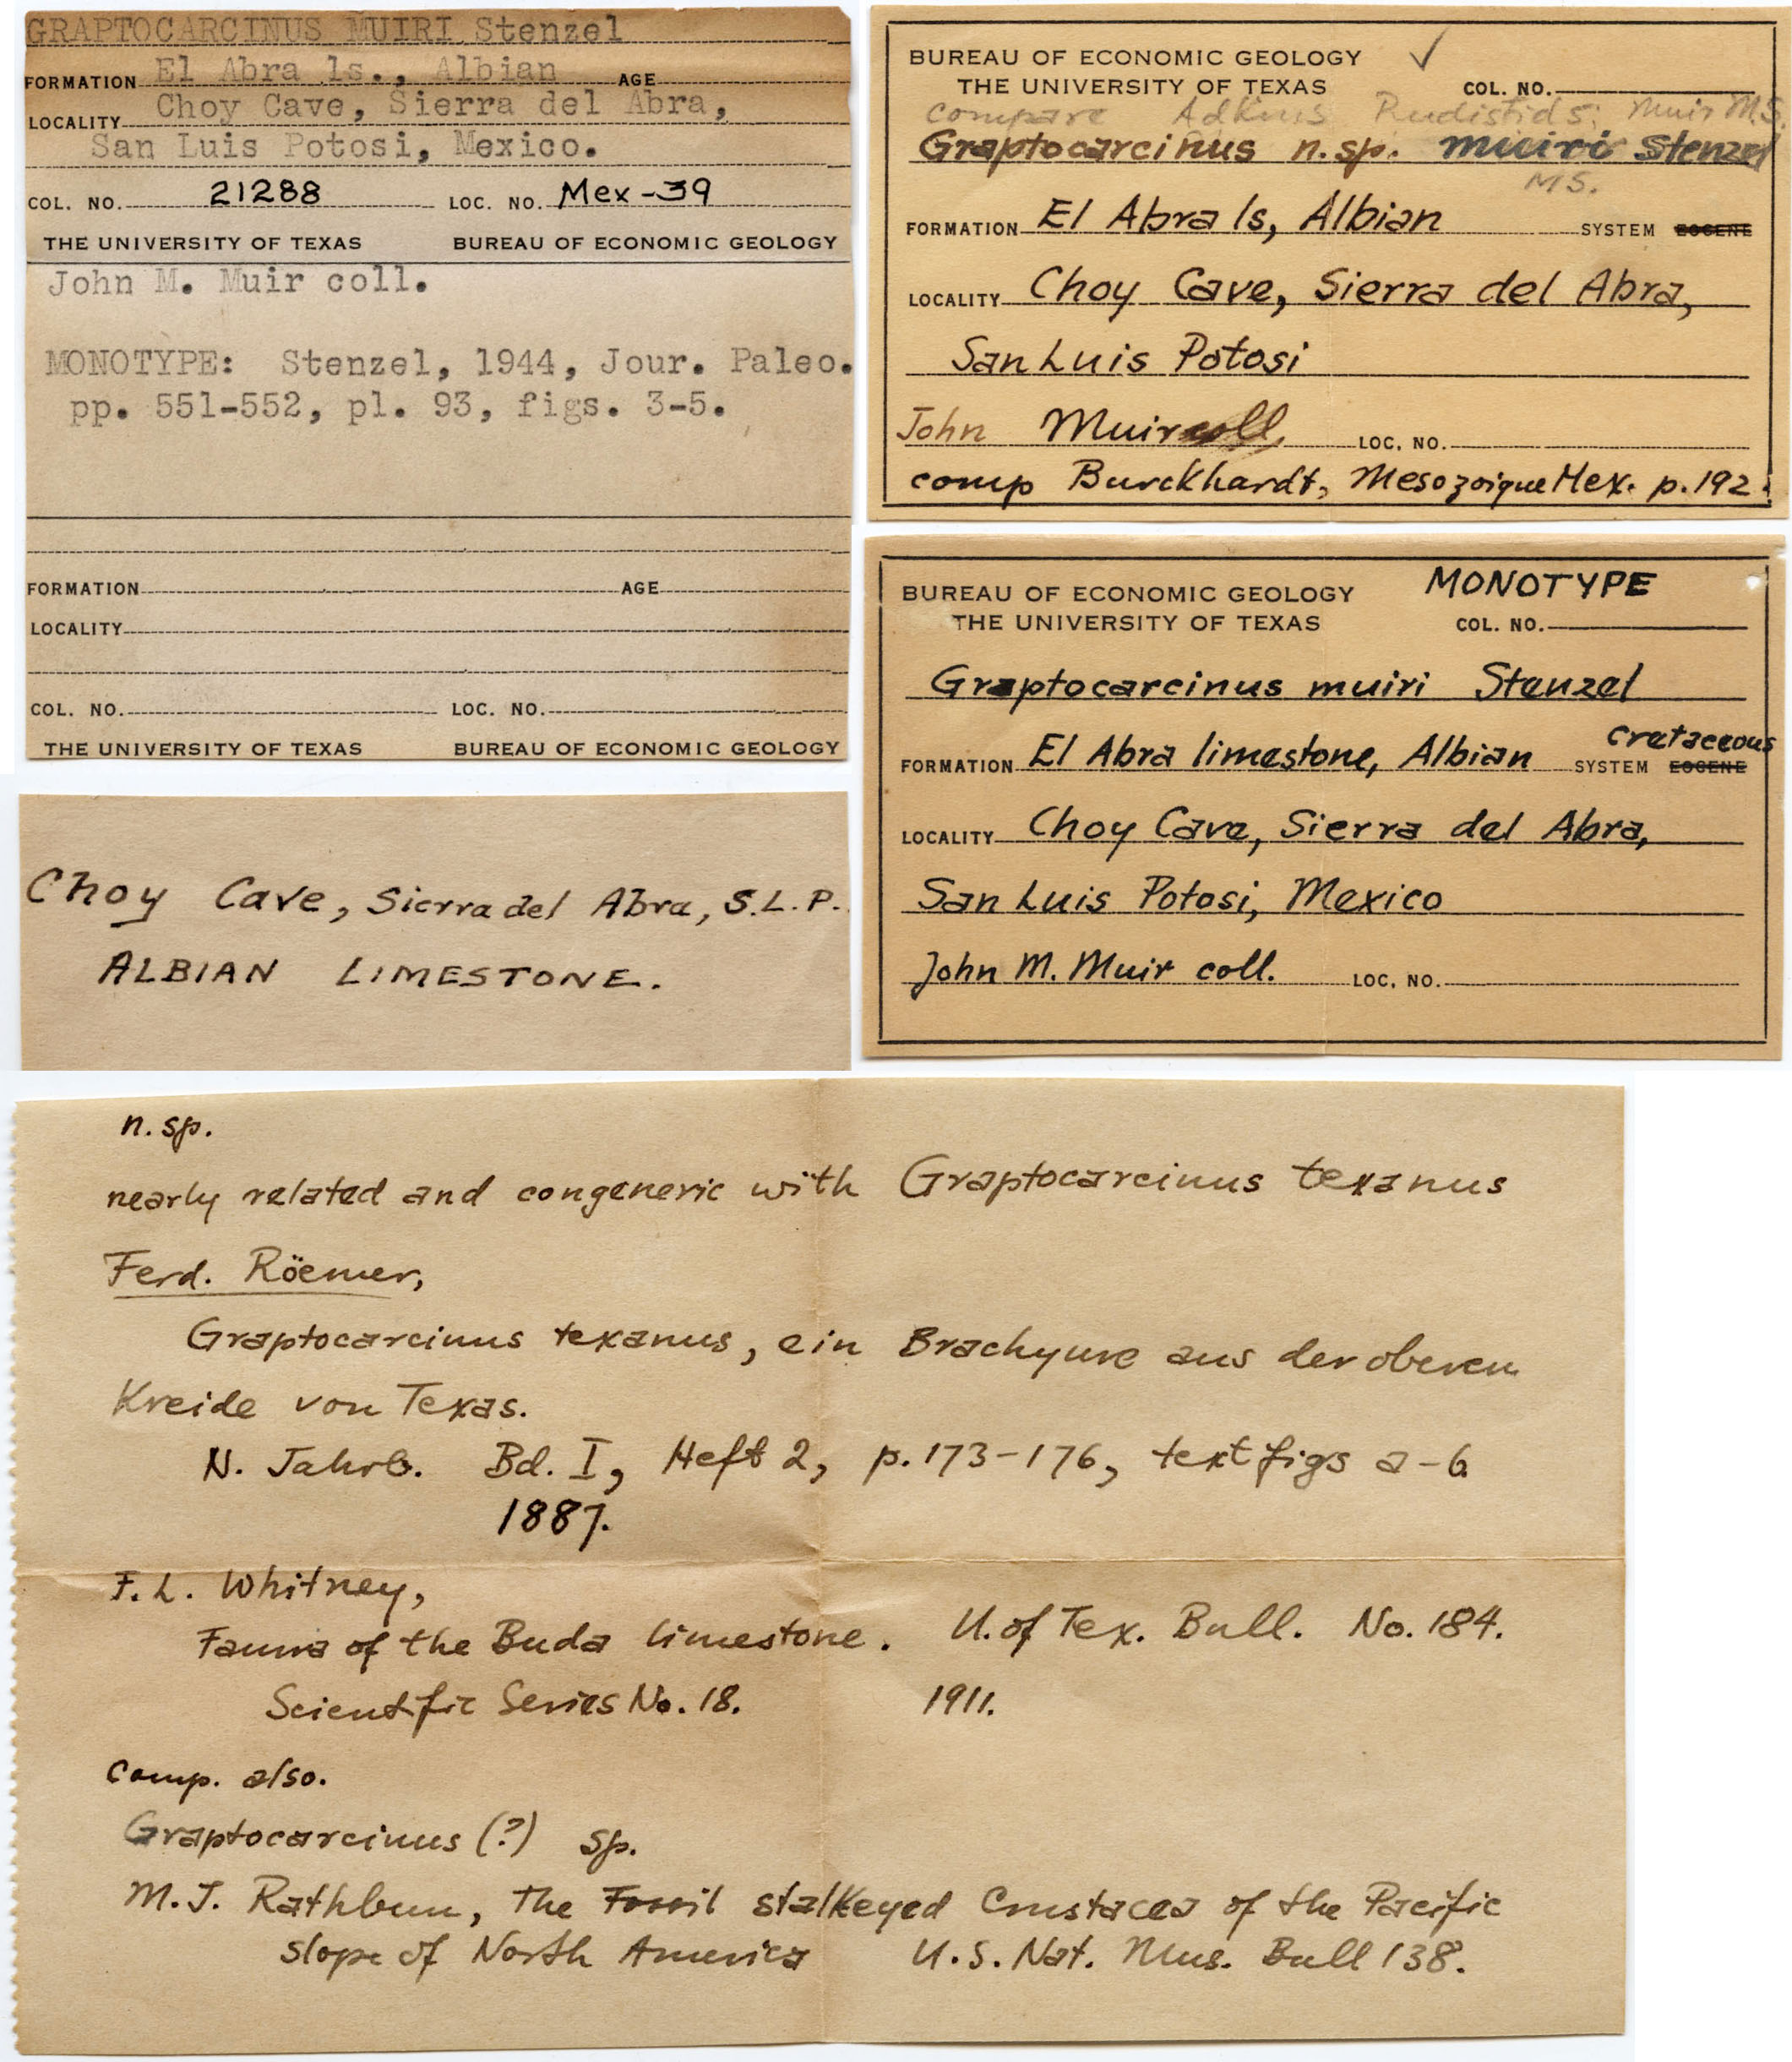 GRAPTOCARCINUS MUIRI Stenzel
FORMATION El Abra ls., Albian AGE
LOCALITY Choy Cave, Sierra del Abra,
San Luis Potosi, Mexico.
COL. NO. 21288 LOC. NO. Mex-39
THE UNIVERSITY OF TEXAS BUREAU OF ECONOMIC GEOLOGY
John M. Muir coll.
MONOTYPE: Stenzel, 1944, Jour. Paleo.
pp. 551-552, pl. 93, figs. 3-5.
FORMATION AGE
LOCALITY
COL. NO. LOC. NO.
THE UNIVERSITY OF TEXAS BUREAU OF ECONOMIC GEOLOGY
Choy Cave, Sierra del Abra, S.L.P.
ALBIAN LIMESTONE.
BUREAU OF ECONOMIC GEOLOGY
THE UNIVERSITY OF TEXAS COL. NO.
compare Adkins Rudistids; Muir M.S.
Graptocarcinus n.sp. muiri Stenzel
MS.
FORMATION El Abra ls, Albian SYSTEM EOCENE
LOCALITY Choy Cave, Sierra del Abra,
San Luis Potosi
John Muir coll. LOC. NO.
comp Burckhardt, Mesozoique Mex. p.192.
BUREAU OF ECONOMIC GEOLOGY MONOTYPE
THE UNIVERSITY OF TEXAS COL. NO.
Graptocarcinus muiri Stenzel
Cretaceous
FORMATION El Abra limestone, Albian SYSTEM EOCENE
LOCALITY Choy Cave, Sierra del Abra,
San Luis Potosi, Mexico
John M. Muir coll. LOC. NO.
n. sp.
nearly related and congeneric with Graptocarcinus texanus
Ferd. Röemer,
Graptocarcinus texanus, ein Brachyure aus der oberen
Kreide von Texas.
N. Jahrb. Bd. I, Heft 2, p. 173-176, text figs a-b
1887.
F. L. Whitney,
Fauna of the Buda limestone. U. of Tex. Bull. No. 184.
Scientific Series No. 18. 1911.
Comp. also.
Graptocarcinus (?) sp.
M. J. Rathbun, The Fossil stalkeyed Crustacea of the Pacific
slope of North America U.S. Nat. Mus. Bull 138.